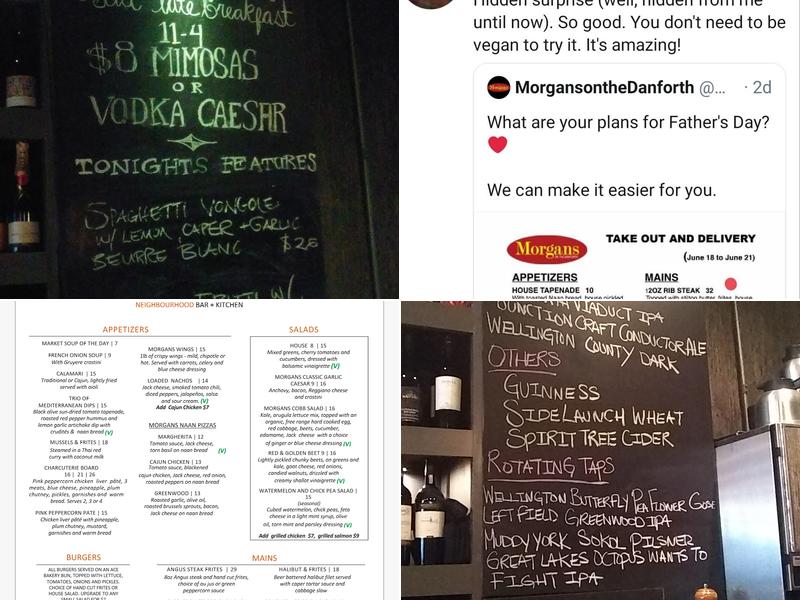 late Breakfast
11-4
$8 MIMOSAS
OR
VODKA CAESAR
TONIGHTS FEATURES
SPAGHETTI VONGOLE
W/ LEMON, CAPER + GARLIC
BEURRE BLANC $26
W/
Hidden surprise (well, hidden from me
until now). So good. You don't need to be
vegan to try it. It's amazing!
MorgansontheDanforth @... · 2d
What are your plans for Father's Day?
❤️
We can make it easier for you.
Morgans
TAKE OUT AND DELIVERY
(June 18 to June 21)
APPETIZERS
HOUSE TAPENADE 10
With toasted Naan bread, house pickled
MAINS
12OZ RIB STEAK 32
Topped with stilton butter, frites, house
NEIGHBOURHOOD BAR + KITCHEN
APPETIZERS
MARKET SOUP OF THE DAY | 7
FRENCH ONION SOUP | 9
With Gruyere crostini
CALAMARI | 15
Traditional or Cajun, lightly fried
served with aioli
TRIO OF
MEDITERRANEAN DIPS | 15
Black olive sun-dried tomato tapenade,
roasted red pepper hummus and
lemon garlic artichoke dip with
crudités & naan bread (V)
MUSSELS & FRITES | 18
Steamed in a Thai red
curry with coconut milk
CHARCUTERIE BOARD
16 | 21 | 26
Pink peppercorn chicken liver pâté, 3
meats, blue cheese, pineapple, plum
chutney, pickles, garnishes and warm
bread. Serves 2, 3 or 4.
PINK PEPPERCORN PATE | 15
Chicken liver pâté with pineapple,
plum chutney, mustard,
garnishes and warm bread
MORGANS WINGS | 15
1lb of crispy wings - mild, chipotle or
hot. Served with carrots, celery and
blue cheese dressing
LOADED NACHOS | 14
Jack cheese, smoked tomato chili,
diced peppers, jalapeños, salsa
and sour cream. (V)
Add Cajun Chicken $7
MORGANS NAAN PIZZAS
MARGHERITA | 12
Tomato sauce, Jack cheese,
torn basil on naan bread (V)
CAJUN CHICKEN | 13
Tomato sauce, blackened
cajun chicken, Jack cheese, red onion,
roasted peppers on naan bread
GREENWOOD | 13
Roasted garlic, olive oil,
roasted brussels sprouts, bacon,
Jack cheese on naan bread
SALADS
HOUSE 8 | 15
Mixed greens, cherry tomatoes and
cucumbers, dressed with
balsamic vinaigrette (V)
MORGANS CLASSIC GARLIC
CAESAR 9 | 16
Anchovy, bacon, Reggiano cheese
and crostini
MORGANS COBB SALAD | 16
Kale, arugula lettuce mix, topped with an
organic, free range hard cooked egg,
red cabbage, beets, cucumber,
edamame, Jack cheese with a choice
of ginger or blue cheese dressing (V)
RED & GOLDEN BEET 9 | 16
Lightly pickled chunky beets, on greens and
kale, goat cheese, red onions,
candied walnuts, drizzled with
creamy shallot vinaigrette (V)
WATERMELON AND CHICK PEA SALAD |
15
(seasonal)
Cubed watermelon, chick peas, feta
cheese in a light mint syrup, olive
oil, torn mint and parsley dressing (V)
Add grilled chicken $7, grilled salmon $9
BURGERS
ALL BURGERS SERVED ON AN ACE
BAKERY BUN, TOPPED WITH LETTUCE,
TOMATOES, ONIONS AND PICKLES.
CHOICE OF HAND CUT FRITES OR
HOUSE SALAD. UPGRADE TO ANY
MAINS
ANGUS STEAK FRITES | 29
8oz Angus steak and hand cut frites,
choice of au jus or green
peppercorn sauce
HALIBUT & FRITES | 18
Beer battered halibut filet served
with caper tartar sauce and
cabbage slaw
VIADUCT IPA
JUNCTION CRAFT CONDUCTOR ALE
WELLINGTON COUNTY DARK
OTHERS
GUINNESS
SIDE LAUNCH WHEAT
SPIRIT TREE CIDER
ROTATING TAPS
WELLINGTON BUTTERFLY PEA FLOWER GOSE
LEFT FIELD GREENWOOD IPA
MUDDY YORK SOKOL PILSNER
GREAT LAKES OCTOPUS WANTS TO
FIGHT IPA